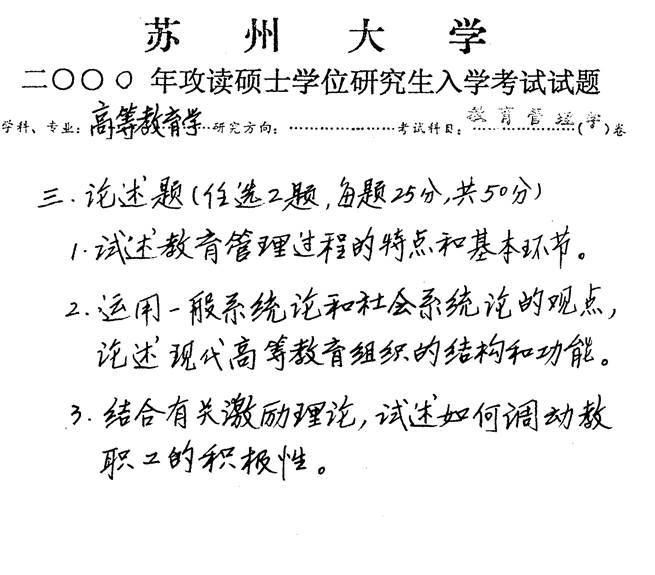 苏州大学
二〇〇〇年攻读硕士学位研究生入学考试试题
学科、专业：高等教育学 研究方向：………………考试科目：教育管理学(　)卷
三.论述题(任选2题,每题25分,共50分)
1.试述教育管理过程的特点和基本环节。
2.运用一般系统论和社会系统论的观点,
论述现代高等教育组织的结构和功能。
3.结合有关激励理论,试述如何调动教
职工的积极性。